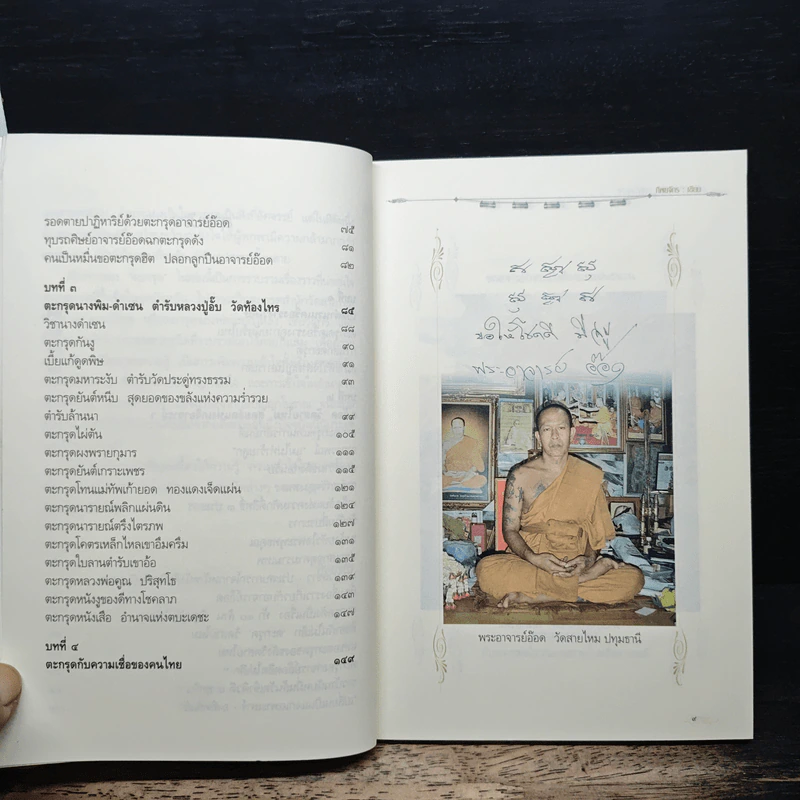 รอดตายปาฏิหาริย์ด้วยตะกรุดอาจารย์อ๊อด ๗๕
ทุบรถศิษย์อาจารย์อ๊อดฉกตะกรุดดัง ๘๑
คนเป็นหมื่นขอตะกรุดฮิต ปลอกลูกปืนอาจารย์อ๊อด ๘๒
บทที่ ๓
ตะกรุดนางพิม-ดำเซน ตำรับหลวงปู่อั๊บ วัดท้องไทร ๘๕
วิชานางดำเซน ๘๘
ตะกรุดกันงู ๙๐
เบี้ยแก้ดูดพิษ ๙๑
ตะกรุดมหาระงับ ตำรับวัดประดู่ทรงธรรม ๙๓
ตะกรุดยันต์หนีบ สุดยอดของขลังแห่งความร่ำรวย
ตำรับล้านนา ๙๙
ตะกรุดไผ่ตัน ๑๐๕
ตะกรุดผงพรายกุมาร ๑๑๑
ตะกรุดยันต์เกราะเพชร ๑๑๕
ตะกรุดโทนแม่ทัพเก้ายอด ทองแดงเจ็ดแผ่น ๑๒๑
ตะกรุดนารายณ์พลิกแผ่นดิน ๑๒๔
ตะกรุดนารายณ์ตรึงไตรภพ ๑๒๗
ตะกรุดโคตรเหล็กไหลเขาอึมครึม ๑๓๑
ตะกรุดใบลานตำรับเขาอ้อ ๑๓๕
ตะกรุดหลวงพ่อคูณ ปริสุทโธ ๑๓๙
ตะกรุดหนังงูของดีทางโชคลาภ ๑๔๓
ตะกรุดหนังเสือ อำนาจแห่งตบะเดชะ ๑๔๗
บทที่ ๔
ตะกรุดกับความเชื่อของคนไทย ๑๔๙
ขอให้โชคดี
พระอาจารย์ อ๊อด
พระอาจารย์อ๊อด วัดสายไหม ปทุมธานี